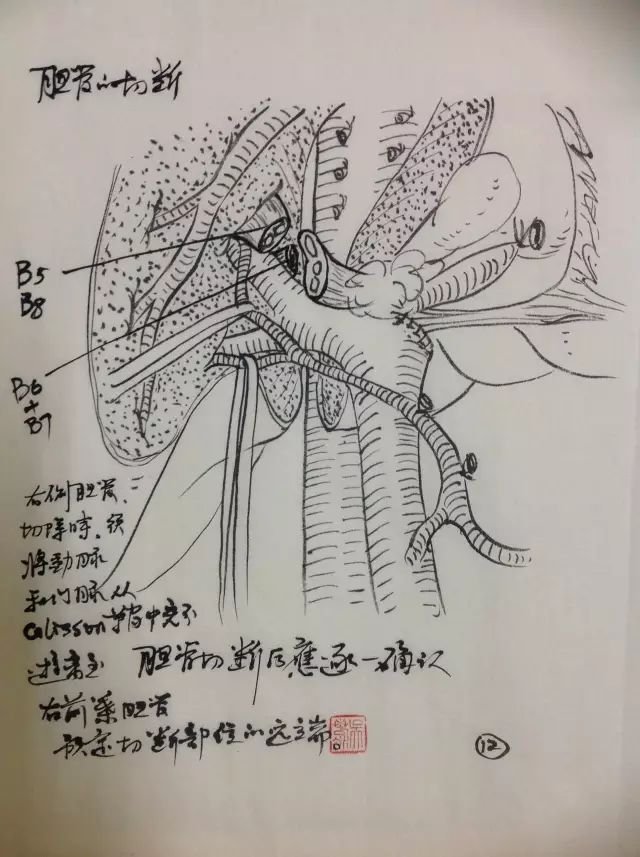 胆管的切断
B5
B8
B6
+
B7
右侧胆管
切除時,须
将动脉
和门脉从
Glisson鞘中完全
游离至
右前叶胆管
预定切断部位的远端。
胆管切断后應逐一确认
12